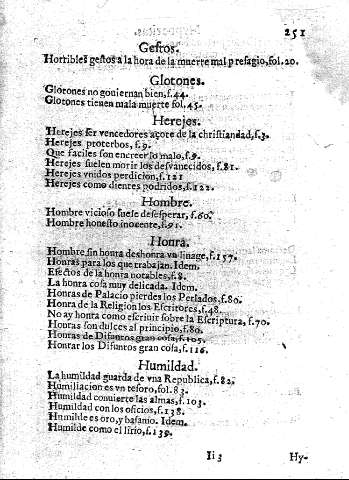 251
Gestos.
Horribles gestos a la hora de la muerte mal presagio, fol. 20.
Glotones.
Glotones no gouiernan bien, f. 44.
Glotones tienen mala muerte fol. 45.
Herejes.
Herejes ser vencedores açote de la christiandad, f. 3.
Herejes proterbos, f. 9.
Que faciles son en creer lo malo, f. 9.
Herejes suelen morir los desvanecidos, f. 81.
Herejes vnidos perdicion, f. 121
Herejes como dientes podridos, f. 122.
Hombre.
Hombre vicioso suele desesperar, f. 60.
Hombre honesto inocente, f. 91.
Honra.
Hombre sin honra deshonra vn linage, f. 157.
Honras para los que trabajan. Idem.
Efectos de la honra notables, f. 8.
La honra cosa muy delicada. Idem.
Honras de Palacio pierdes los Perlados, f. 80.
Honra de la Religion los Escritores, f. 48.
No ay honra como escriuir sobre la Escriptura, f. 70.
Honras son dulces al principio, f. 80.
Honras de Difuntos gran cosa, f. 105.
Honrar los Difuntos gran cosa, f. 116.
Humildad.
La humildad guarda de vna Republica, f. 82.
Humiliacion es vn tesoro, fol. 83.
Humildad conuierte las almas, f. 103.
Humildad con los oficios, f. 138.
Humilde es oro, y basanio. Idem.
Humilde como el lirio, f. 139.
Ii 3 Hy-